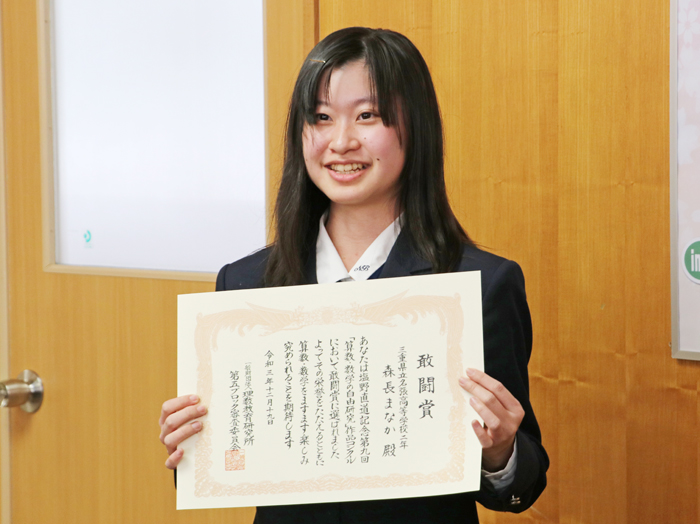 敢闘賞
三重県立名張高等学校二年
森長まなか 殿
あなたは塩野直道記念第九回
「算数・数学の自由研究」作品コンクール
において敢闘賞に選ばれました
よってその栄誉をたたえるとともに
算数・数学をますます楽しみ
究められることを期待します
令和三年十二月十九日
一般財団法人 理数教育研究所
第五ブロック審査委員会
in